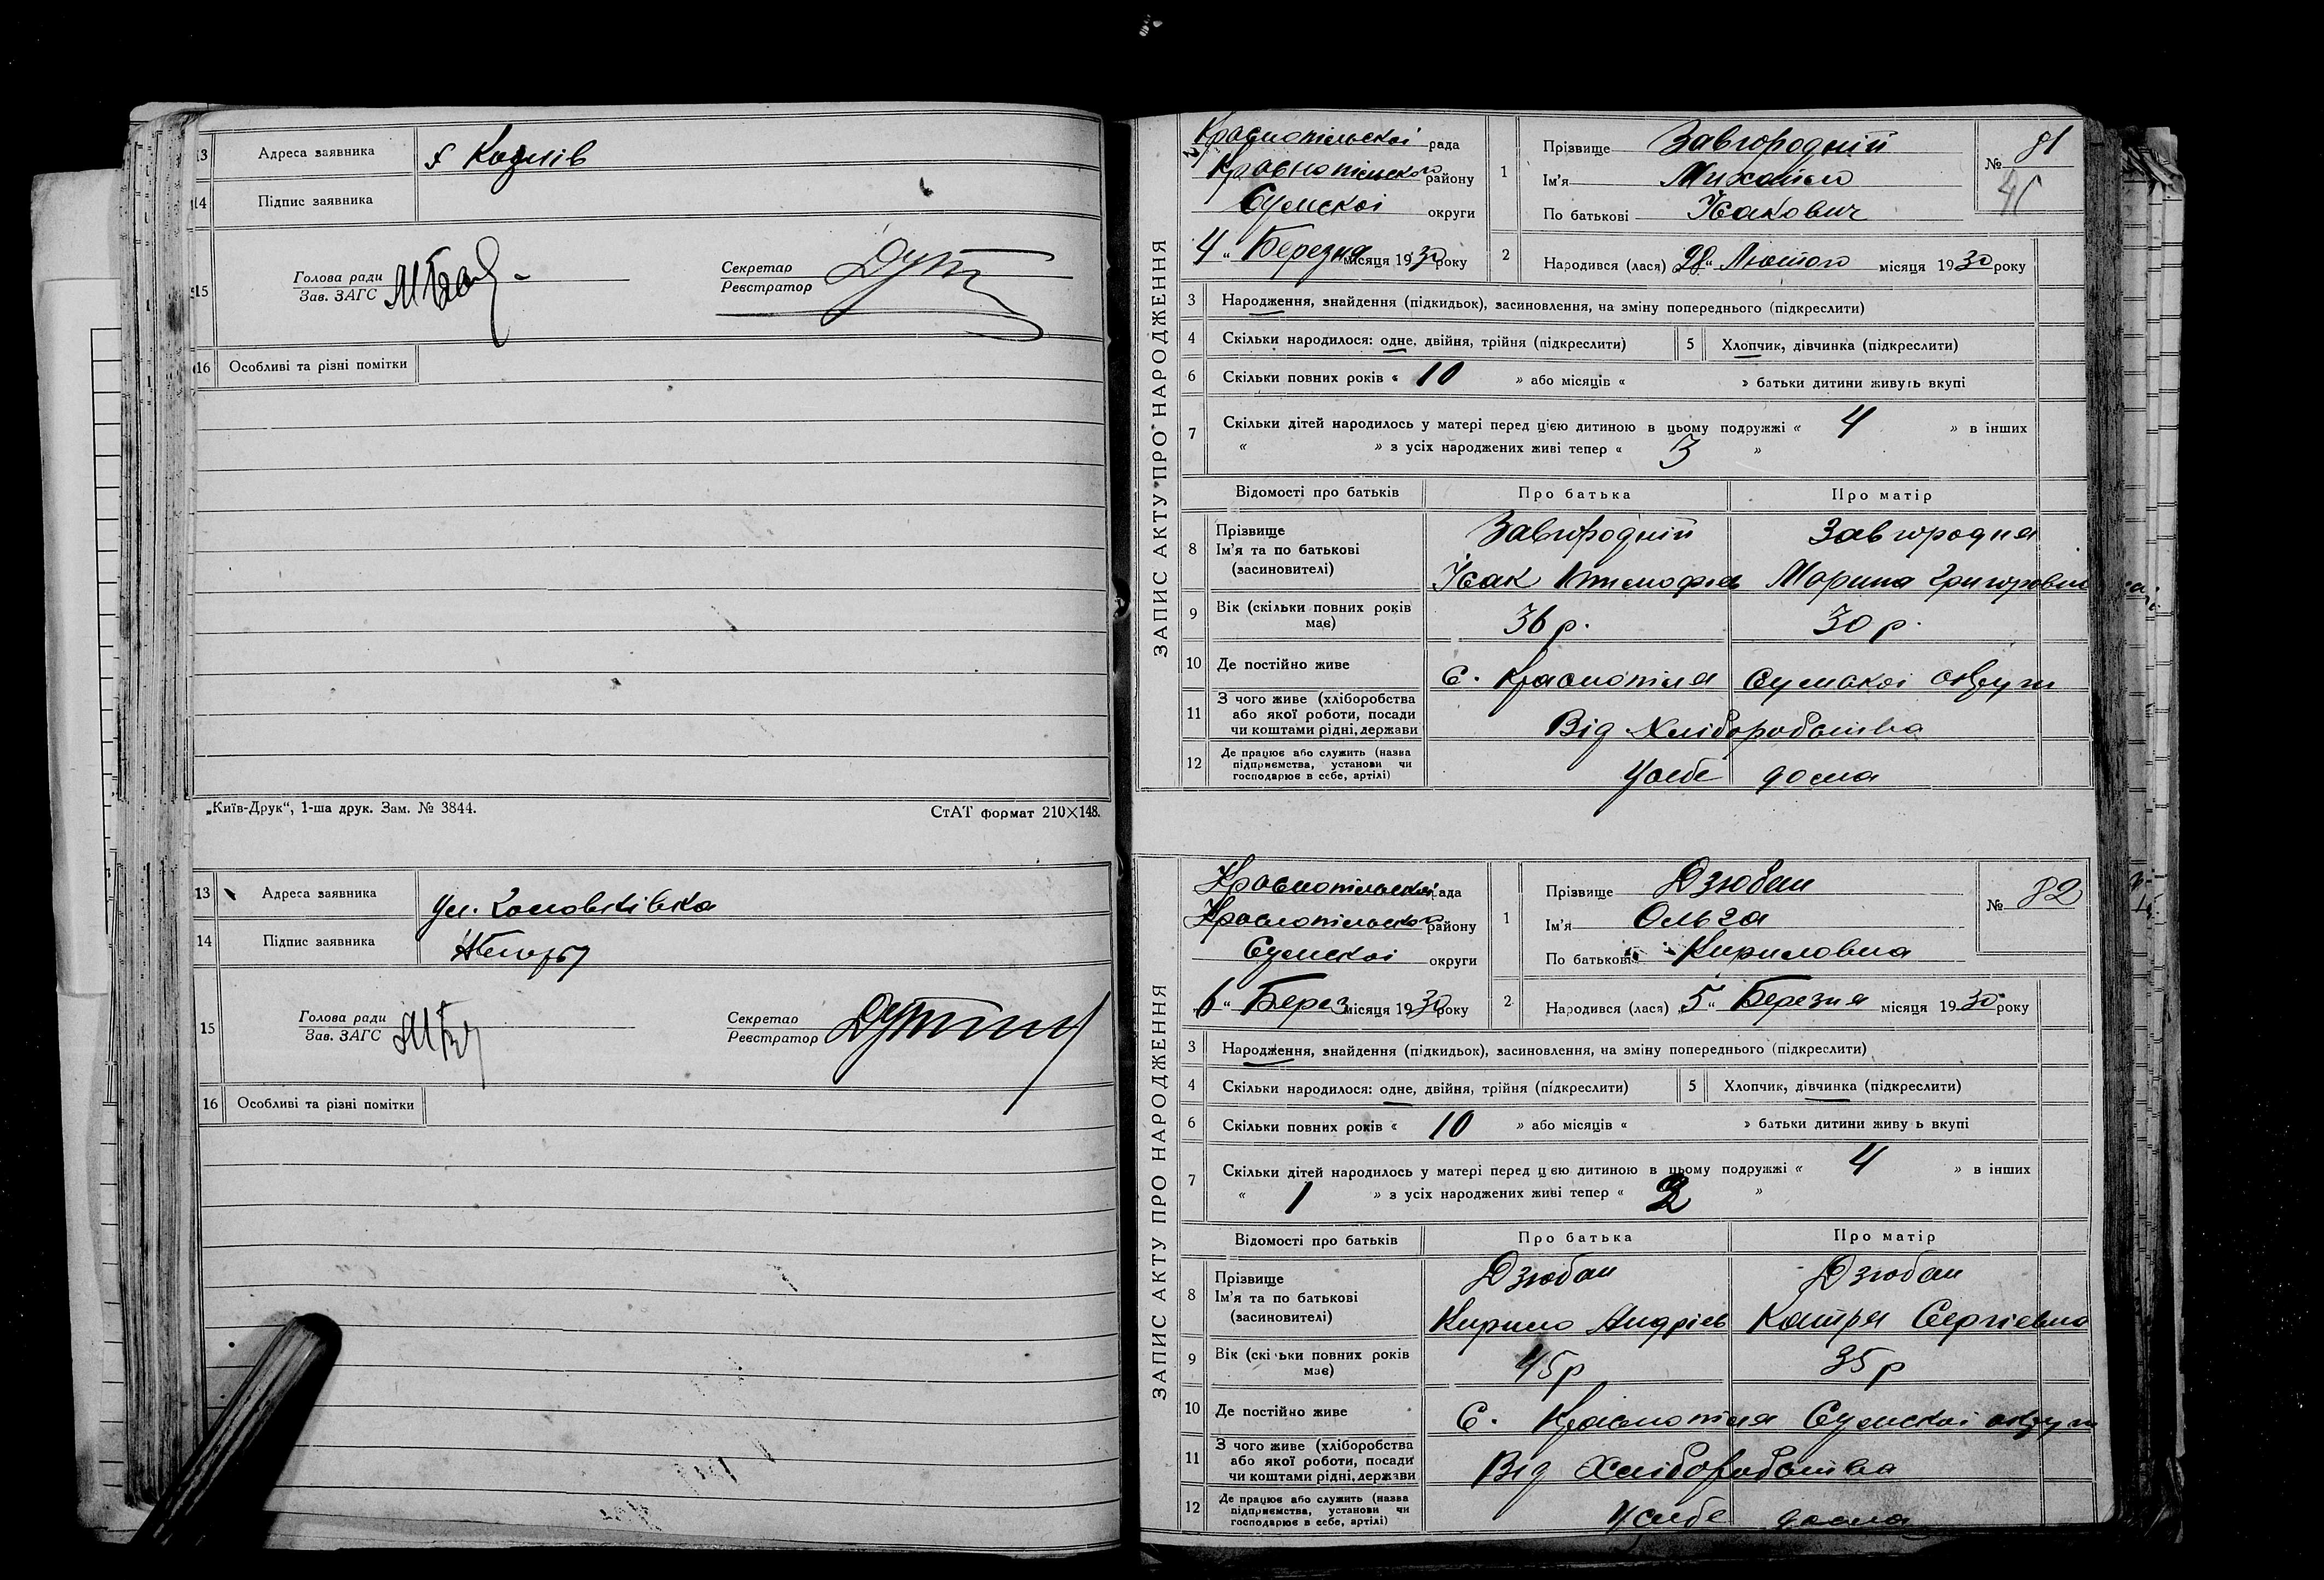 13 Адреса заявника х Козиів
14 Підпис заявника
15 Голова ради
Зав. ЗАГС
Секретар
Реєстратор
16 Особливі та різні помітки
„Київ-Друк“, 1-ша друк. Зам. № 3844. СтАТ формат 210×148.
13 Адреса заявника
14 Підпис заявника
15 Голова ради
Зав. ЗАГС
Секретар
Реєстратор
16 Особливі та різні помітки
ЗАПИС АКТУ ПРО НАРОДЖЕННЯ
Краснопільскої рада
Краснопільского району
Сумскої округи
4 „ Березня місяця 1930 року
1 Прізвище Завгородній
Ім'я Михайло
По батькові Ісакович
№ 81
41
2 Народився (лася) 28 „ Лютого місяця 1930 року
3 Народження, знайдення (підкидьок), засиновлення, на зміну попереднього (підкреслити)
4 Скільки народилося: одне, двійня, трійня (підкреслити) 5 Хлопчик, дівчинка (підкреслити)
6 Скільки повних років « 10 » або місяців « » батьки дитини живуть вкупі
7 Скільки дітей народилось у матері перед цією дитиною в цьому подружжі « 4 » в інших
« » з усіх народжених живі тепер « 3 »
Відомості про батьків Про батька Про матір
8 Прізвище
Ім'я та по батькові
(засиновителі)
Завгородній Завгородня
Ісак Тимофієв Марина Григоровна
9 Вік (скільки повних років
має) 36 р. 30 р.
10 Де постійно живе С. Краснопілля Сумскої округи
11 З чого живе (хліборобства
або якої роботи, посади
чи коштами рідні, держави Від Хліборобства
12 Де працює або служить (назва
підприємства, установи чи
господарює в себе, артілі) У себе дома
ЗАПИС АКТУ ПРО НАРОДЖЕННЯ
Краснопільскої рада
Краснопільского району
Сумскої округи
6 „ Берез місяця 1930 року
1 Прізвище Дзюбан
Ім'я Ольга
По батькові Кириловна
№ 82
2 Народився (лася) 5 „ Березня місяця 1930 року
3 Народження, знайдення (підкидьок), засиновлення, на зміну попереднього (підкреслити)
4 Скільки народилося: одне, двійня, трійня (підкреслити) 5 Хлопчик, дівчинка (підкреслити)
6 Скільки повних років « 10 » або місяців « » батьки дитини живу ь вкупі
7 Скільки дітей народилось у матері перед цією дитиною в цьому подружжі « 4 » в інших
« 1 » з усіх народжених живі тепер « 2 »
Відомості про батьків Про батька Про матір
8 Прізвище
Ім'я та по батькові
(засиновителі)
Дзюбан Дзюбан
Кирило Андрієв Катря Сергієвна
9 Вік (скі ьки повних років
має) 45 р 35 р
10 Де постійно живе С. Краснопілля Сумскої округи
11 З чого живе (хліборобства
або якої роботи, посади
чи коштами рідні, держави Від Хліборобства
12 Де працює або служить (назва
підприємства, установи чи
господарює в себе, артілі) У себе дома